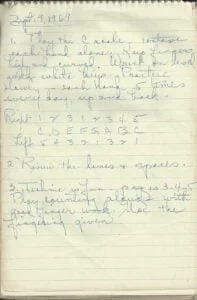 Sept. 9, 1969
1. Play the C scale. octave
each hand alone. Keep fingers
curved. Practice
slowly - each hand 5 times
every day, up and back.
Right 1 2 3 1 2 3 4 5
C D E F G A B C
Left 5 4 3 2 1 3 2 1
2. Review the lines & spaces.
3. Technic is Fun - pages 3-4-5
Play counting aloud with
good finger work. Use the
fingering given.